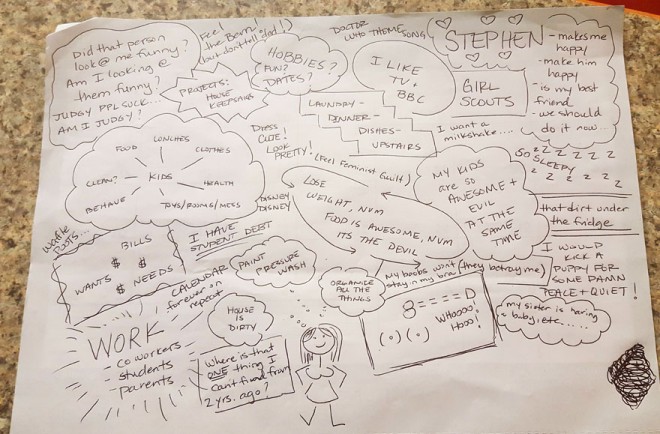 Did that person
look @ me funny?
Am I looking @
them funny?
JUDGY PPL SUCK...
AM I JUDGY?
Feel
the Bern!
but don't tell dad!)
PROJECTS:
HOUSE
KEEPING
HOBBIES?
FUN?
DATES?
DOCTOR
WHO THEME
SONG
I LIKE
TV +
BBC
STEPHEN
- makes me
happy
- make him
happy
- is my best
friend
- we should
do it now...
GIRL
SCOUTS
LAUNDRY-
DINNER-
DISHES-
UPSTAIRS
I want a
milkshake....
SO SLEEPY
z z z z z z
z z z z z
FOOD
LUNCHES
CLOTHES
CLEAN?
KIDS
HEALTH
BEHAVE
TOYS/ROOMS/MESS
DRESS
CUTE!
LOOK
PRETTY!
(Feel Feminist Guilt)
DISNEY
DISNEY
LOSE
WEIGHT, NVM
FOOD IS AWESOME, NVM
ITS THE DEVIL
MY KIDS
are so
AWESOME +
EVIL
AT THE
SAME
TIME
that dirt under
the fridge
Waffle
BILLS
$ $
WANTS $ NEEDS
I HAVE
STUDENT DEBT
CALENDAR
forever on
repeat
PAINT
PRESSURE
WASH
ORGANIZE
ALL THE
THINGS
My boobs won't (they betray me)
stay in my bra
8====D
WHOOOO!
HOOO!
(o)(o)
I WOULD
KICK A
PUPPY FOR
SOME DAMN
PEACE + QUIET!
my sister is having
a baby, etc.....
WORK
coworkers
students
parents
HOUSE
IS
DIRTY
where is that
ONE thing I
can't find from
2 yrs. ago?